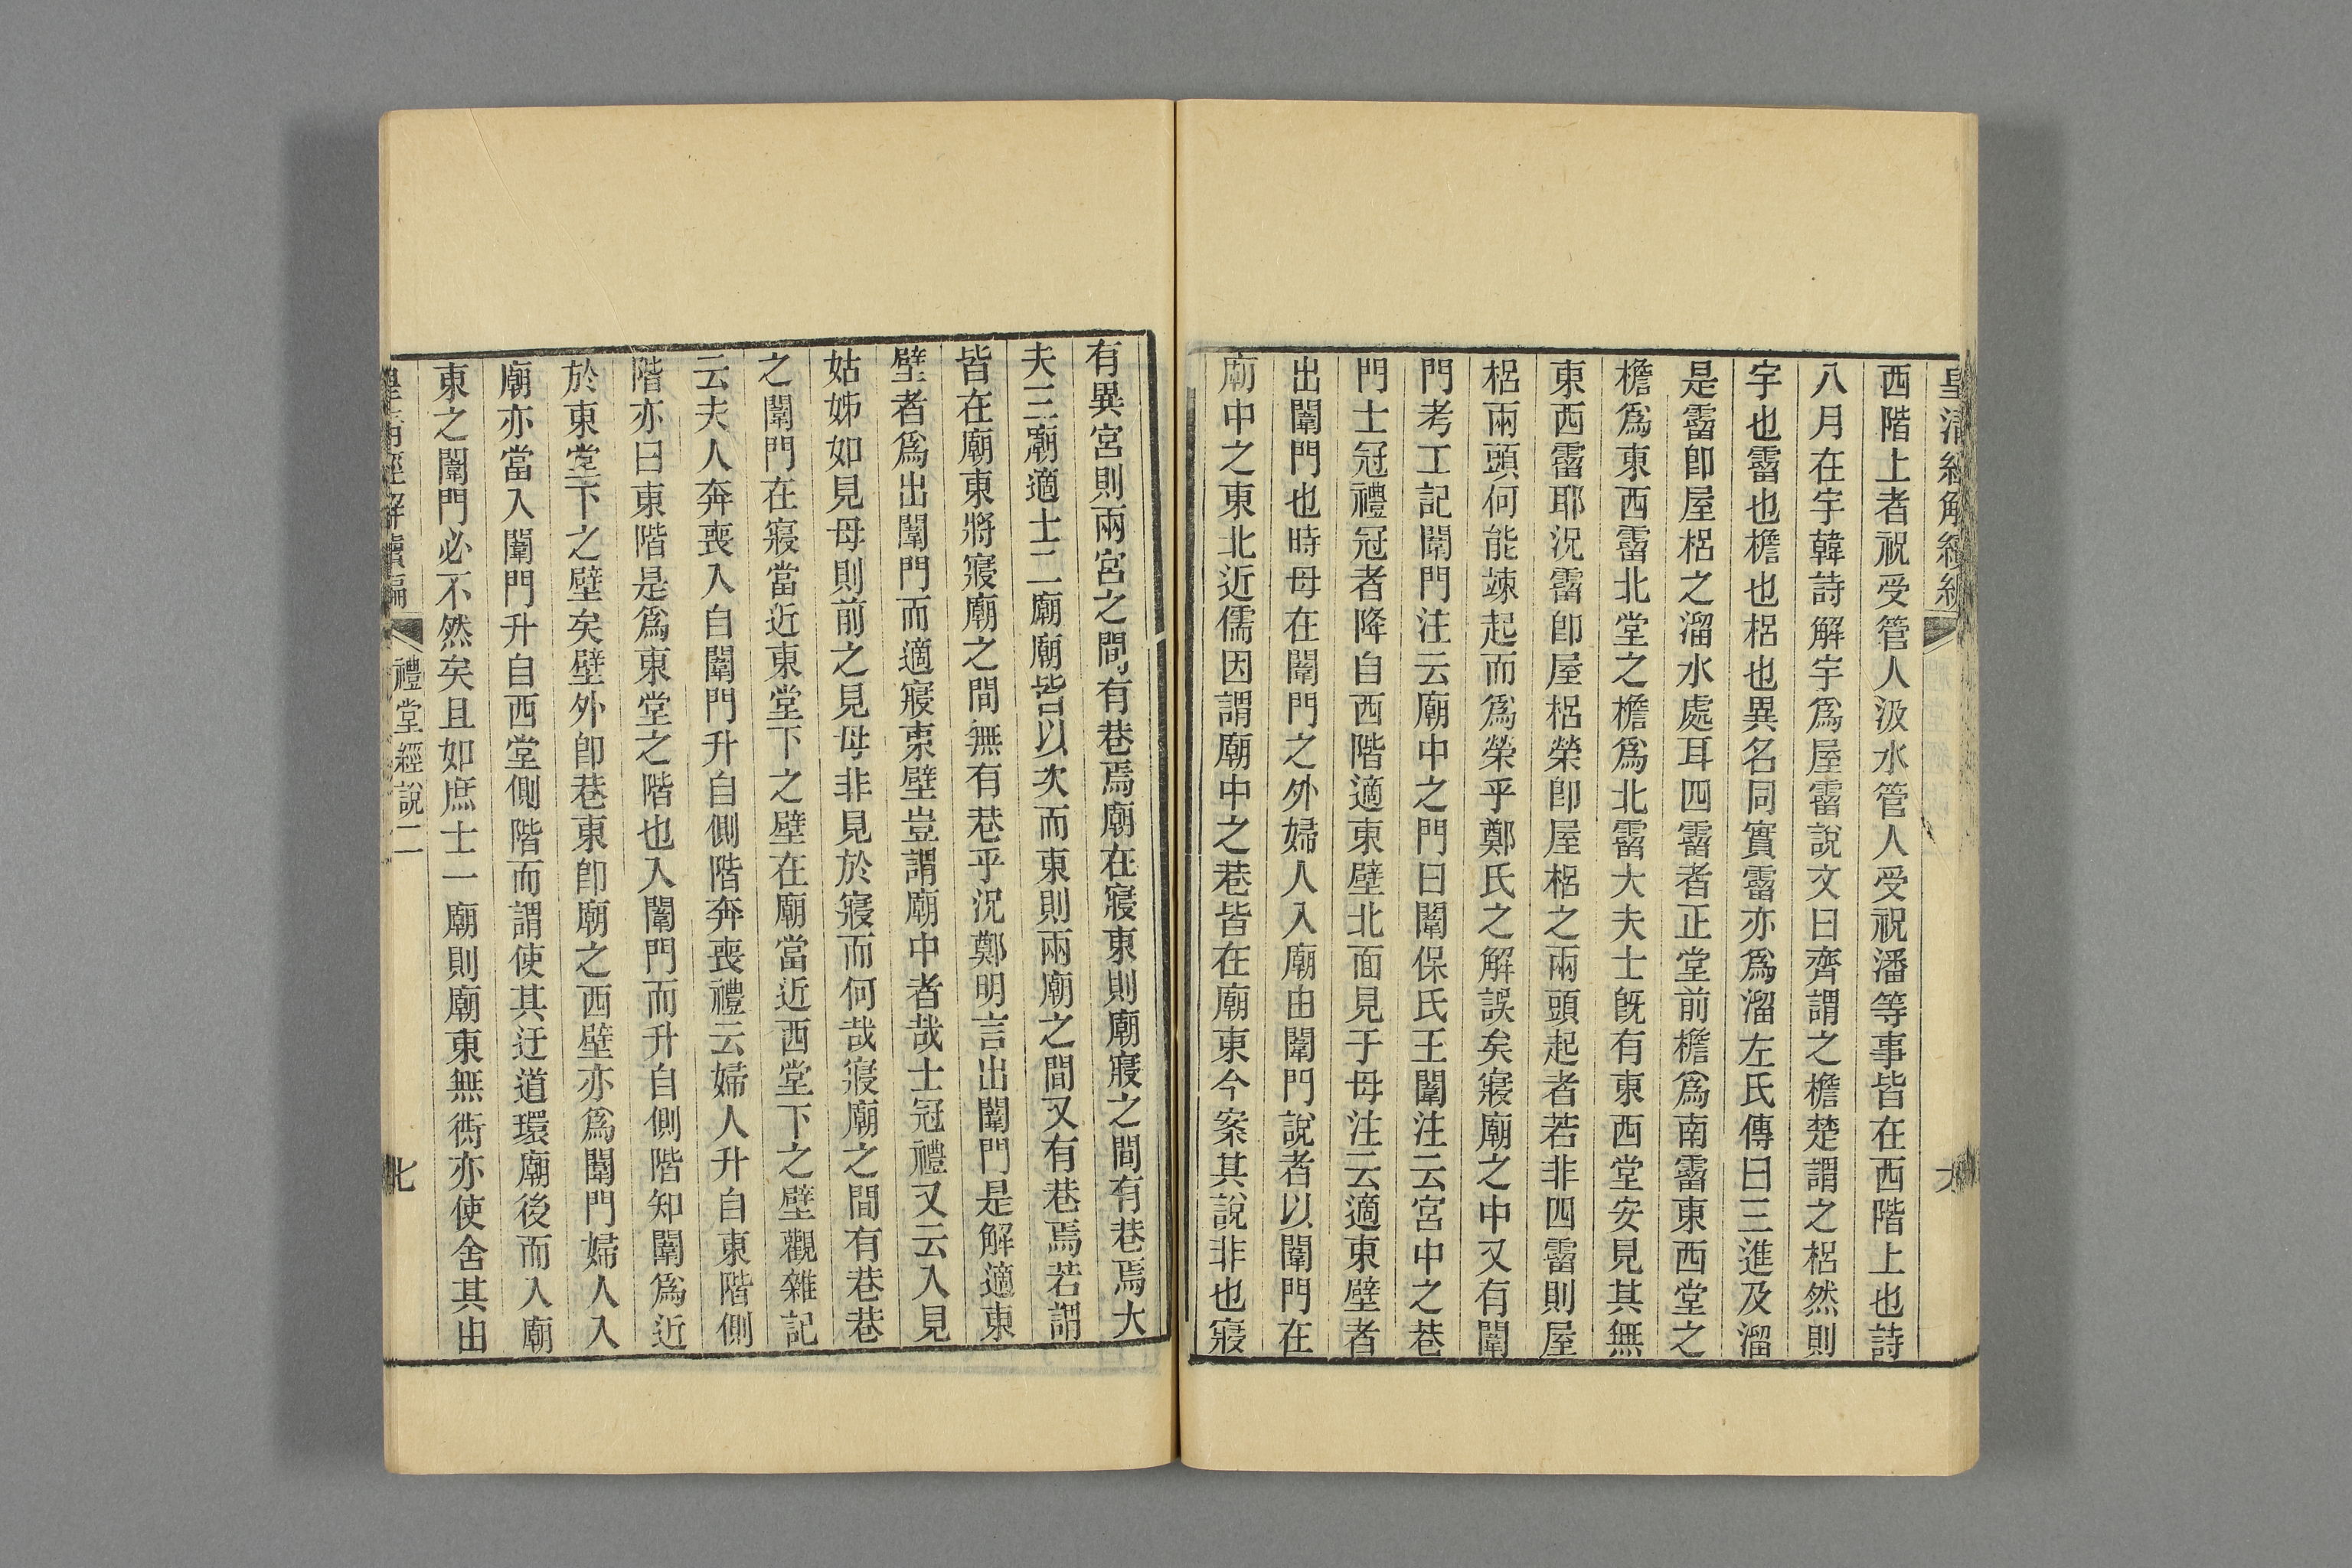 西階上者祝受管人汲水管人受祝潘等事皆在西階上也詩
八月在宇韓詩解宇爲屋霤說文曰齊謂之檐楚謂之梠然則
宇也霤也檐也梠也異名同實霤亦爲溜左氏傳曰三進及溜
是霤卽屋梠之溜水處耳四霤者正堂前檐爲南霤東西堂之
檐爲東西霤北堂之檐爲北霤大夫士旣有東西堂安見其無
東西霤耶況霤卽屋梠榮卽屋梠之兩頭起者若非四霤則屋
梠兩頭何能竦起而爲榮乎鄭氏之解誤矣寢廟之中又有闈
門考工記闈門注云廟中之門曰闈保氏王闈注云宮中之巷
門士冠禮冠者降自西階適東壁北面見于母注云適東壁者
出闈門也時母在闈門之外婦人入廟由闈門說者以闈門在
廟中之東北近儒因謂廟中之巷皆在廟東今案其說非也寢
有異宮則兩宮之間有巷焉廟在寢東則廟寢之間有巷焉大
夫三廟適士二廟廟皆以次而東則兩廟之間又有巷焉若謂
皆在廟東將寢廟之間無有巷乎況鄭明言出闈門是解適東
壁者爲出闈門而適寢東壁豈謂廟中者哉士冠禮又云入見
姑姊如見母則前之見母非見於寢而何哉寢廟之間有巷巷
之闈門在寢當近東堂下之壁在廟當近西堂下之壁觀雜記
云夫人奔喪入自闈門升自側階奔喪禮云婦人升自東階側
階亦曰東階是爲東堂之階也入闈門而升自側階知闈爲近
於東堂下之壁矣壁外卽巷東卽廟之西壁亦爲闈門婦人入
廟亦當入闈門升自西堂側階而謂使其迂道環廟後而入廟
東之闈門必不然矣且如庶士一廟則廟東無衖亦使舍其由
禮堂經說二